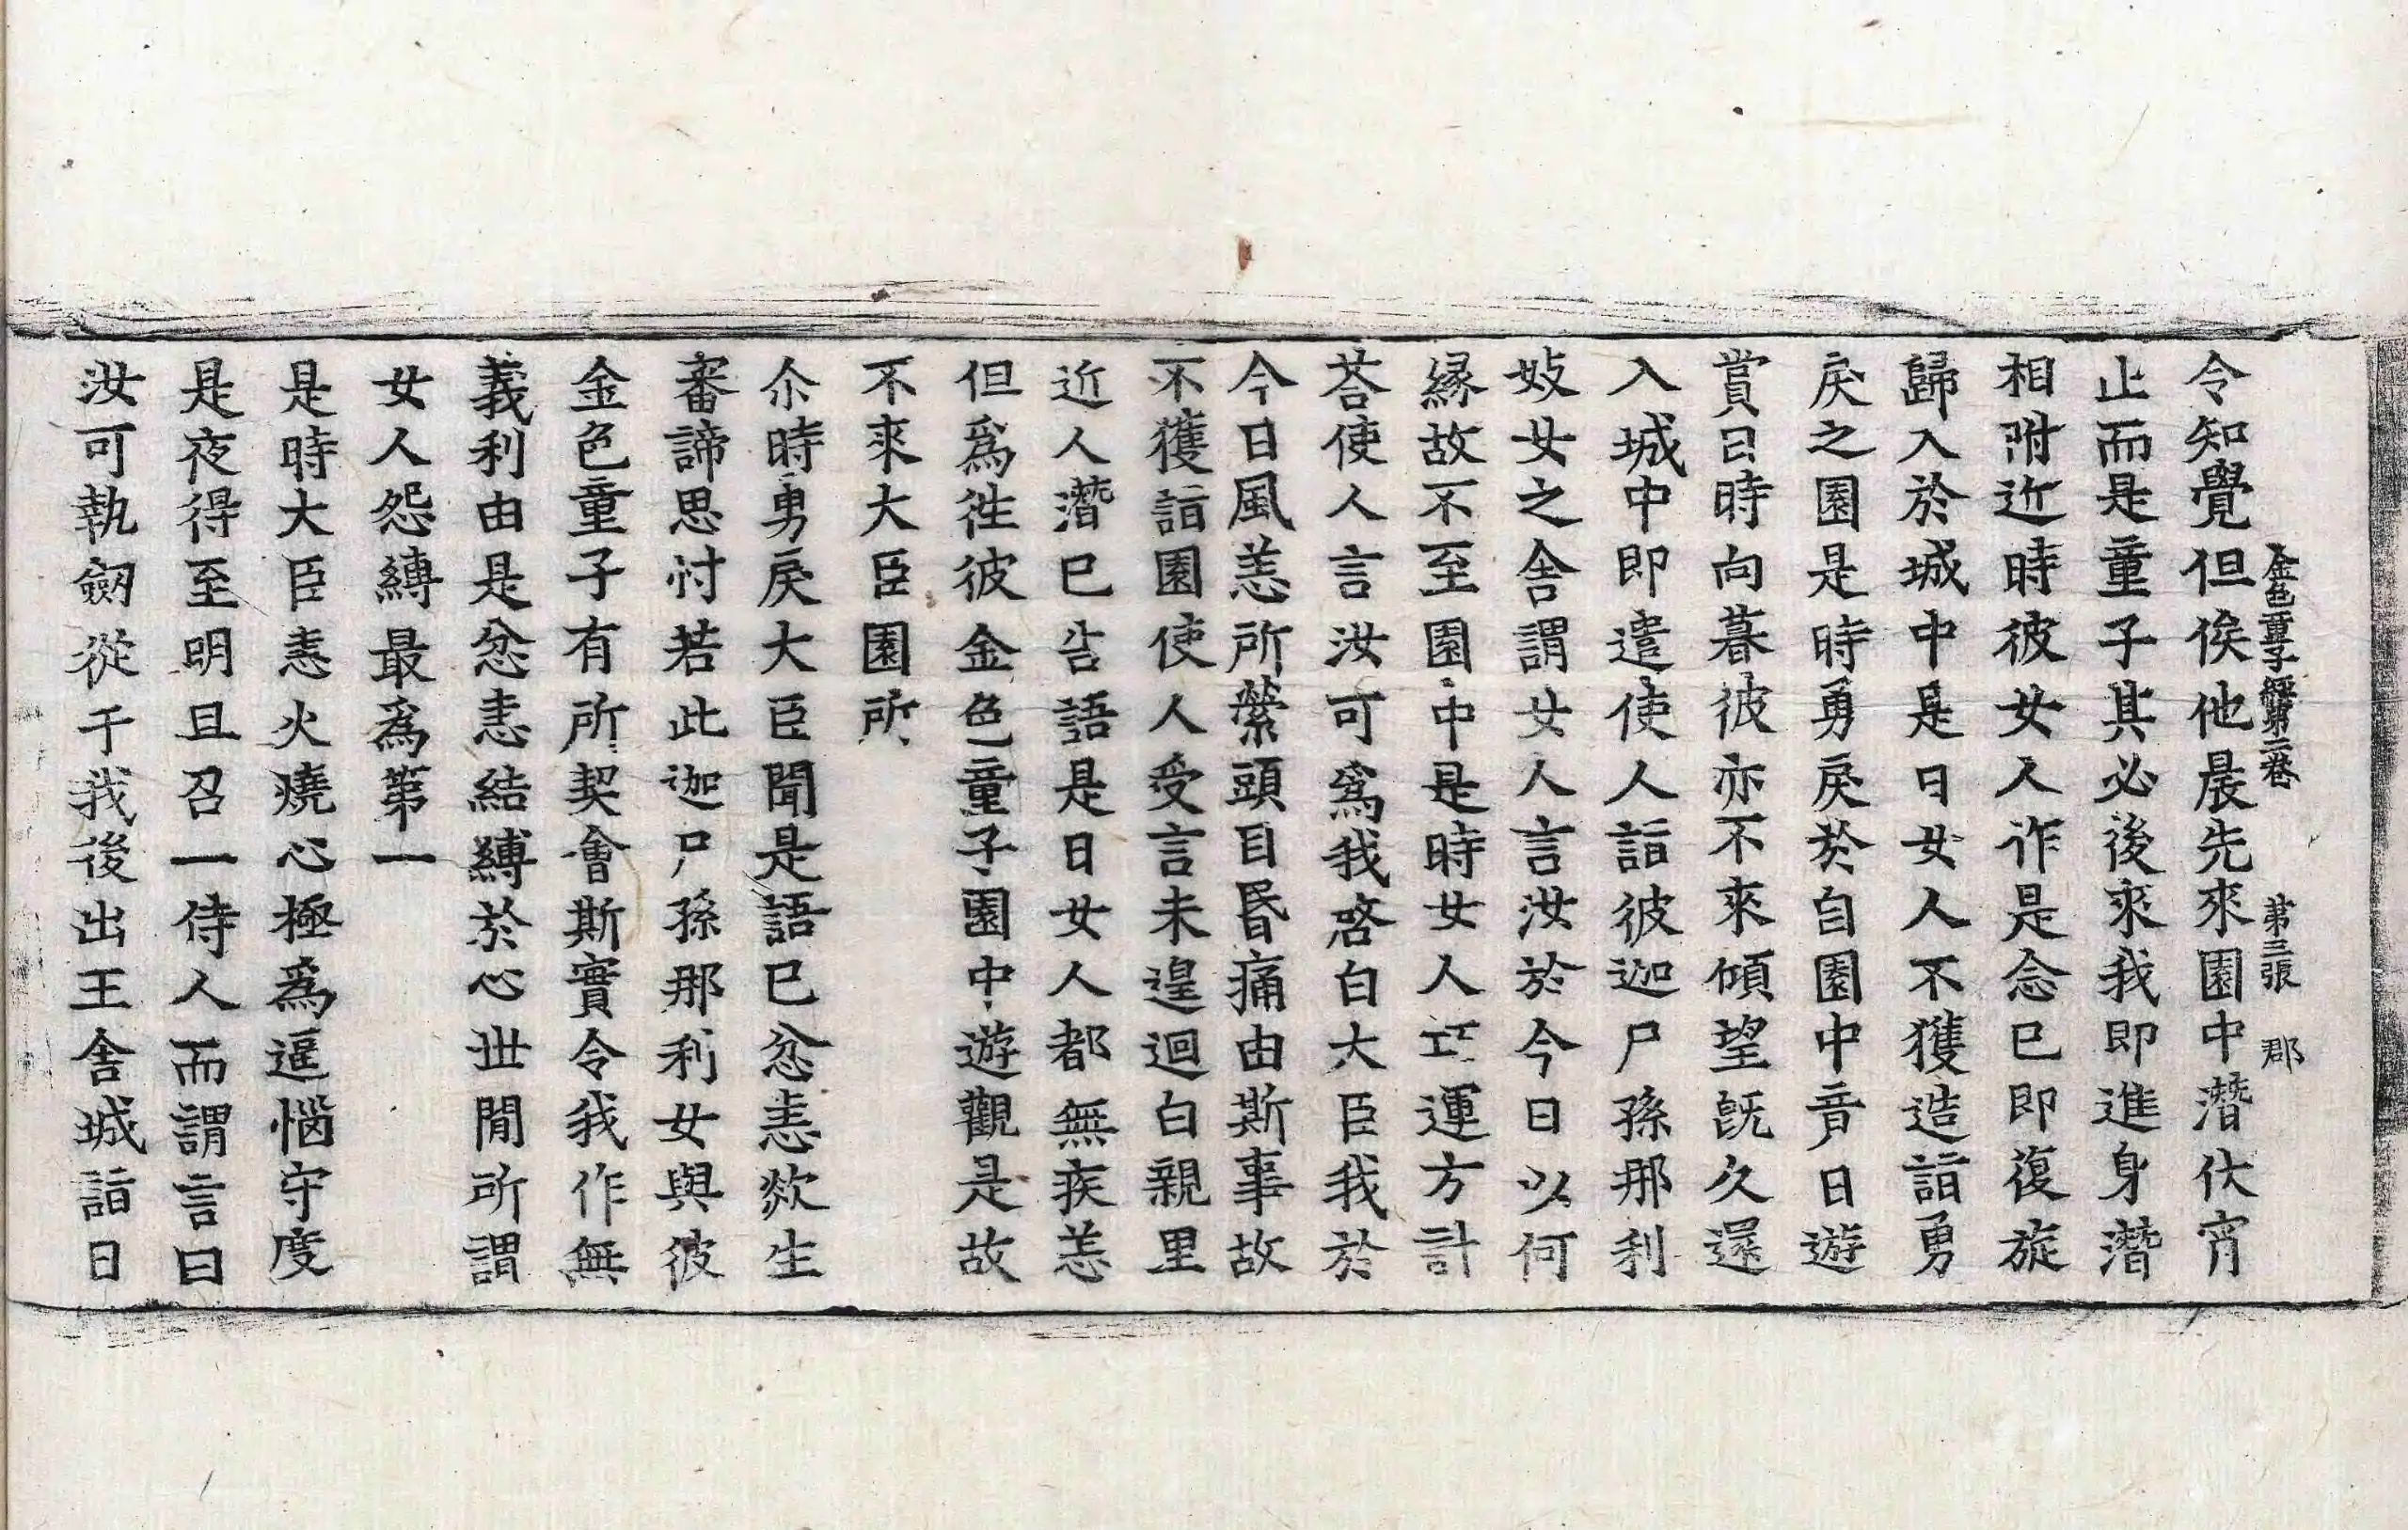 金色童子經第二卷 第三張 郡
令知覺但俟他晨先來園中潛伏宵
止而是童子其必後來我即進身潛
相附近時彼女人作是念已即復旋
歸入於城中是日女人不獲造詣勇
戾之園是時勇戾於自園中竟日遊
賞日時向暮彼亦不來傾望旣久還
入城中即遣使人詣彼迦尸孫那利
妓女之舍謂女人言汝於今日以何
緣故不至園中是時女人巧運方計
荅使人言汝可爲我啓白大臣我於
今日風恙所縈頭目昬痛由斯事故
不獲詣園使人受言未遑迴白親里
近人潛已告語是日女人都無疾恙
但爲徃彼金色童子園中遊觀是故
不來大臣園所
尒時勇戾大臣聞是語已忿恚欻生
審諦思忖若此迦尸孫那利女與彼
金色童子有所契會斯實令我作無
義利由是忿恚結縛於心世間所謂
女人怨縛最爲第一
是時大臣恚火燒心極爲逼惱守度
是夜得至明旦召一侍人而謂言曰
汝可執劒從于我後出王舍城詣日